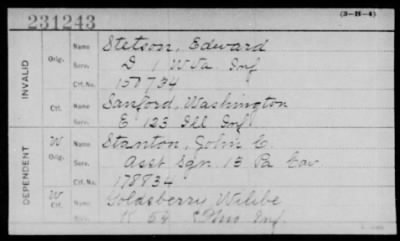 231243
(3-H-4)
INVALID
Orig.
Name Stetson, Edward
Serv. D 1 W Va. Inf
Ctf. No. 157734
Ctf.
Name Sanford, Washington
Serv. E 123 Ill Inf
DEPENDENT
W
Orig.
Name Stanton, John C.
Serv. Asst Sgn. 13 Pa Cav
Ctf. No. 178834
W
Ctf.
Name Goldsberry
Serv. K 59 Ohio Inf.